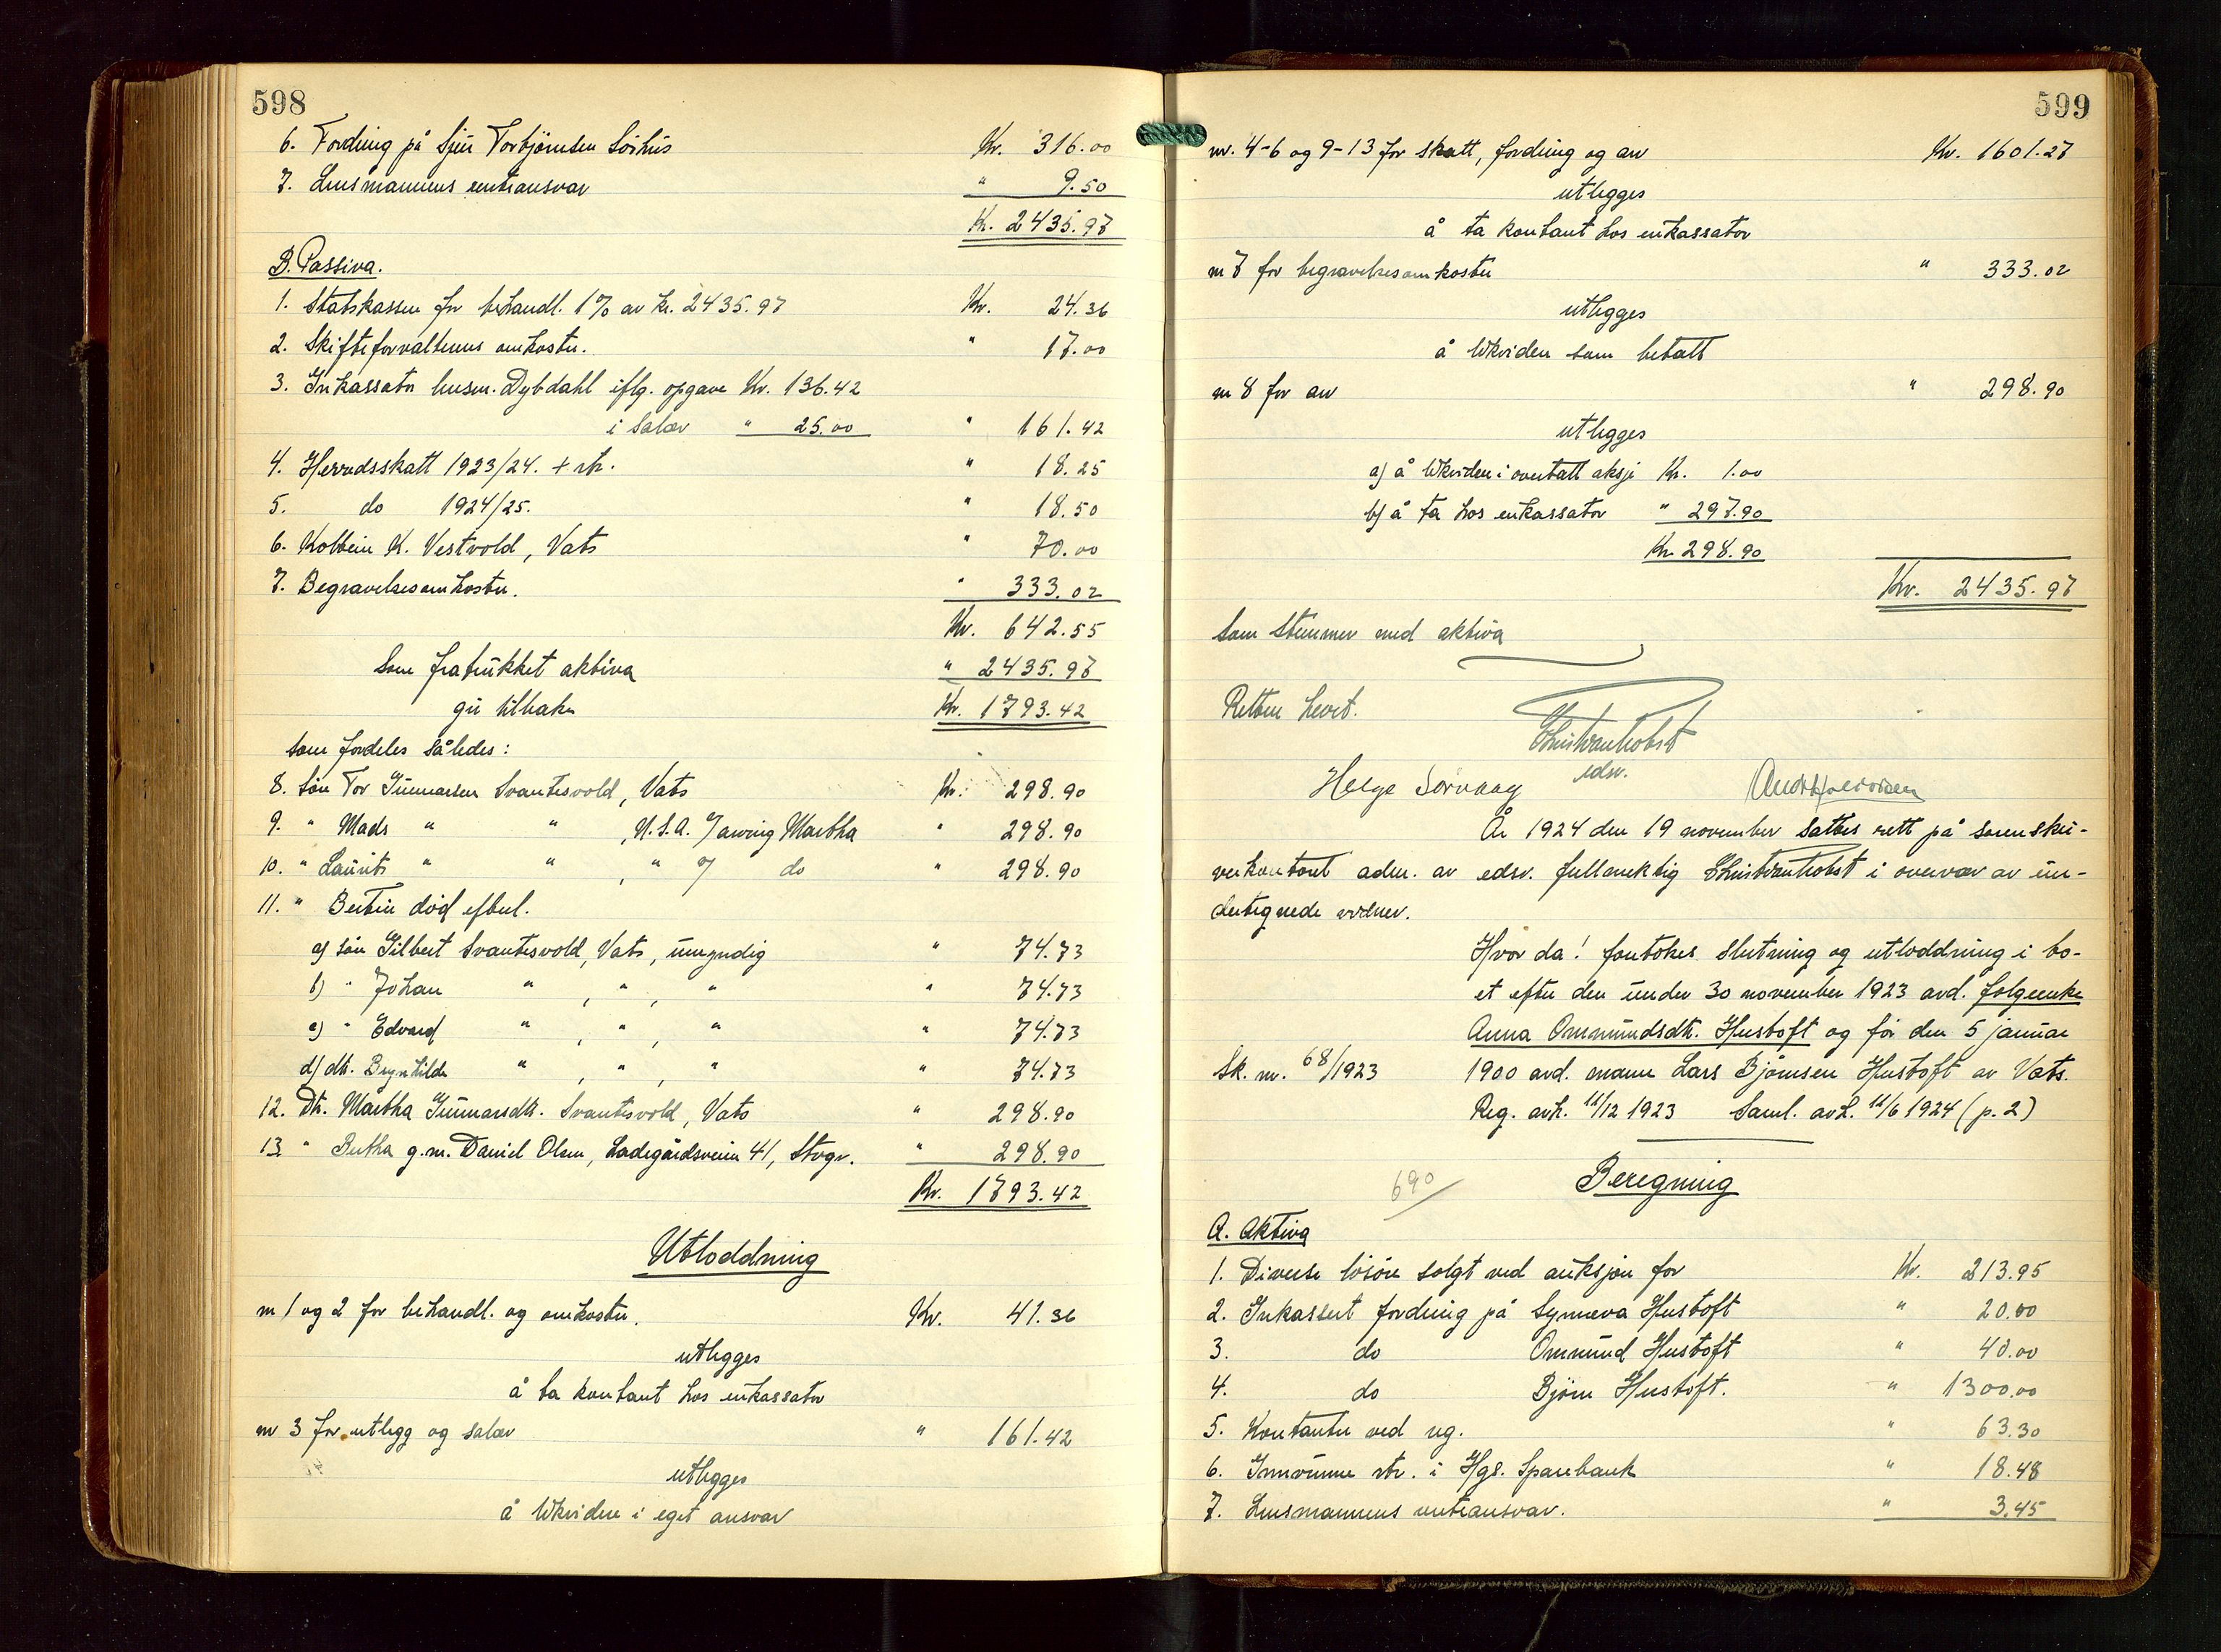 598
6. Fordring på Sjur Torbjørnsen Sørhus Kr. 316.00
7. Lensmannens renteansvar " 9.50
Kr. 2435.97
B. Passiva.
1. Statskassen for behandl. 1% av kr. 2435.97 Kr. 24.36
2. Skifteforvalterens omkostn. " 17.00
3. Inkassator lensm. Dybdahl iflg. opgave Kr. 136.42
i salær " 25.00 " 161.42
4. Herredsskatt 1923/24. + rtr. " 18.25
5. do 1924/25. " 18.50
6. Kolbein K. Vestvold, Vats " 70.00
7. Begravelsesomkostn. " 333.02
Kr. 642.55
som fratrukket aktiva " 2435.97
gir tilbake Kr. 1793.42
som fordeles således:
8. Søn Tor Gunnarsen Svantesvold, Vats Kr. 298.90
9. " Mads " " , U.S.A. v/ arving Martha " 298.90
10. " Laurits " " , " v/ do " 298.90
11. " Bertin død efterl.
a) søn Gilbert Svantesvold, Vats, umyndig " 74.73
b) " Johan " , " , " " 74.73
c) " Edvard " , " , " " 74.73
d) dtr. Brynhilde " , " , " " 74.73
12. Dtr. Martha Gunnarsdtr. Svantesvold, Vats " 298.90
13 " Bertha g.m. Daniel Olsen, Ladegårdsveien 41, Stvgr. " 298.90
Kr. 1793.42
Utloddning
nr 1 og 2 for behandl. og omkostn. Kr. 41.36
utlegges
å ta kontant hos inkassator
nr 3 for utlegg og salær " 161.42
utlegges
å likvidere i eget ansvar
599
nr. 4-6 og 9-13 for skatt, fordring og arv Kr. 1601.27
utlegges
å ta kontant hos inkassator
nr 7 for begravelsesomkostn " 333.02
utlegges
å likvidere som betalt
nr 8 for arv " 298.90
utlegges
a) å likvidere i overtatt aksje Kr. 1.00
b) å ta hos inkassator " 297.90
Kr. 298.90
Kr. 2435.97
som stemmer med aktiva
Retten hevet.
edsv.
Helge Sørvaag
År 1924 den 19 november sattes rett på sorenskri-
verkontoret adm. av edsv. fullmektig i overvær av un-
dertegnede vidner.
Hvor da! foretokes slutning og utloddning i bo-
et efter den under 30 november 1923 avd. følgeenke
Anna Ommundsdtr. Hustoft og før den 5 januar
Sk. nr. 68/1923 1900 avd. mann Lars Bjørnsen Hustoft av Vats.
Reg. avh. 11/12 1923 Saml. avh. 11/6 1924 (p. 2)
690
Beregning
A. Aktiva
1. Diverse løsøre solgt ved auksjon for Kr. 213.95
2. Inkassert fordring på Synneva Hustoft " 20.00
3. do Ommund Hustoft " 40.00
4. do Bjørn Hustoft. " 1300.00
5. Kontanter ved reg. " 63.30
6. Innvunne rtr. i Hgs. Sparebank " 18.48
7. Lensmannens renteansvar. " 3.45